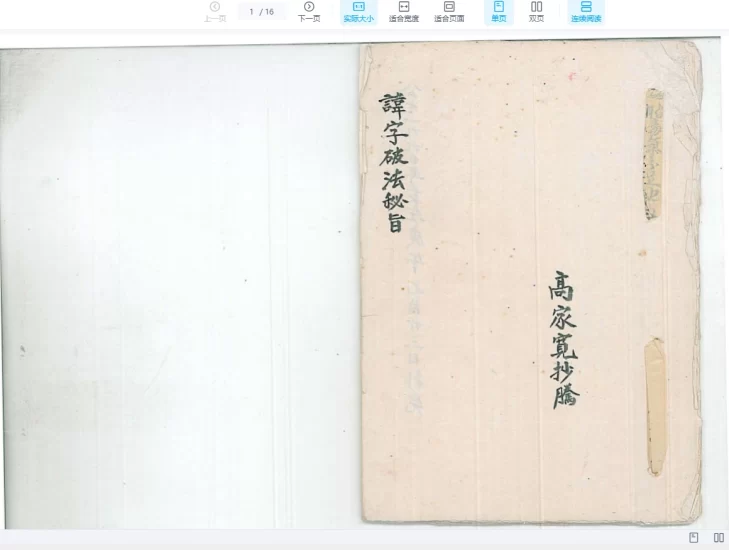 上一页
1 / 16
下一页
实际大小
适合宽度
适合页面
单页
双页
连续阅读
諱字破法秘旨
高家寬抄騰